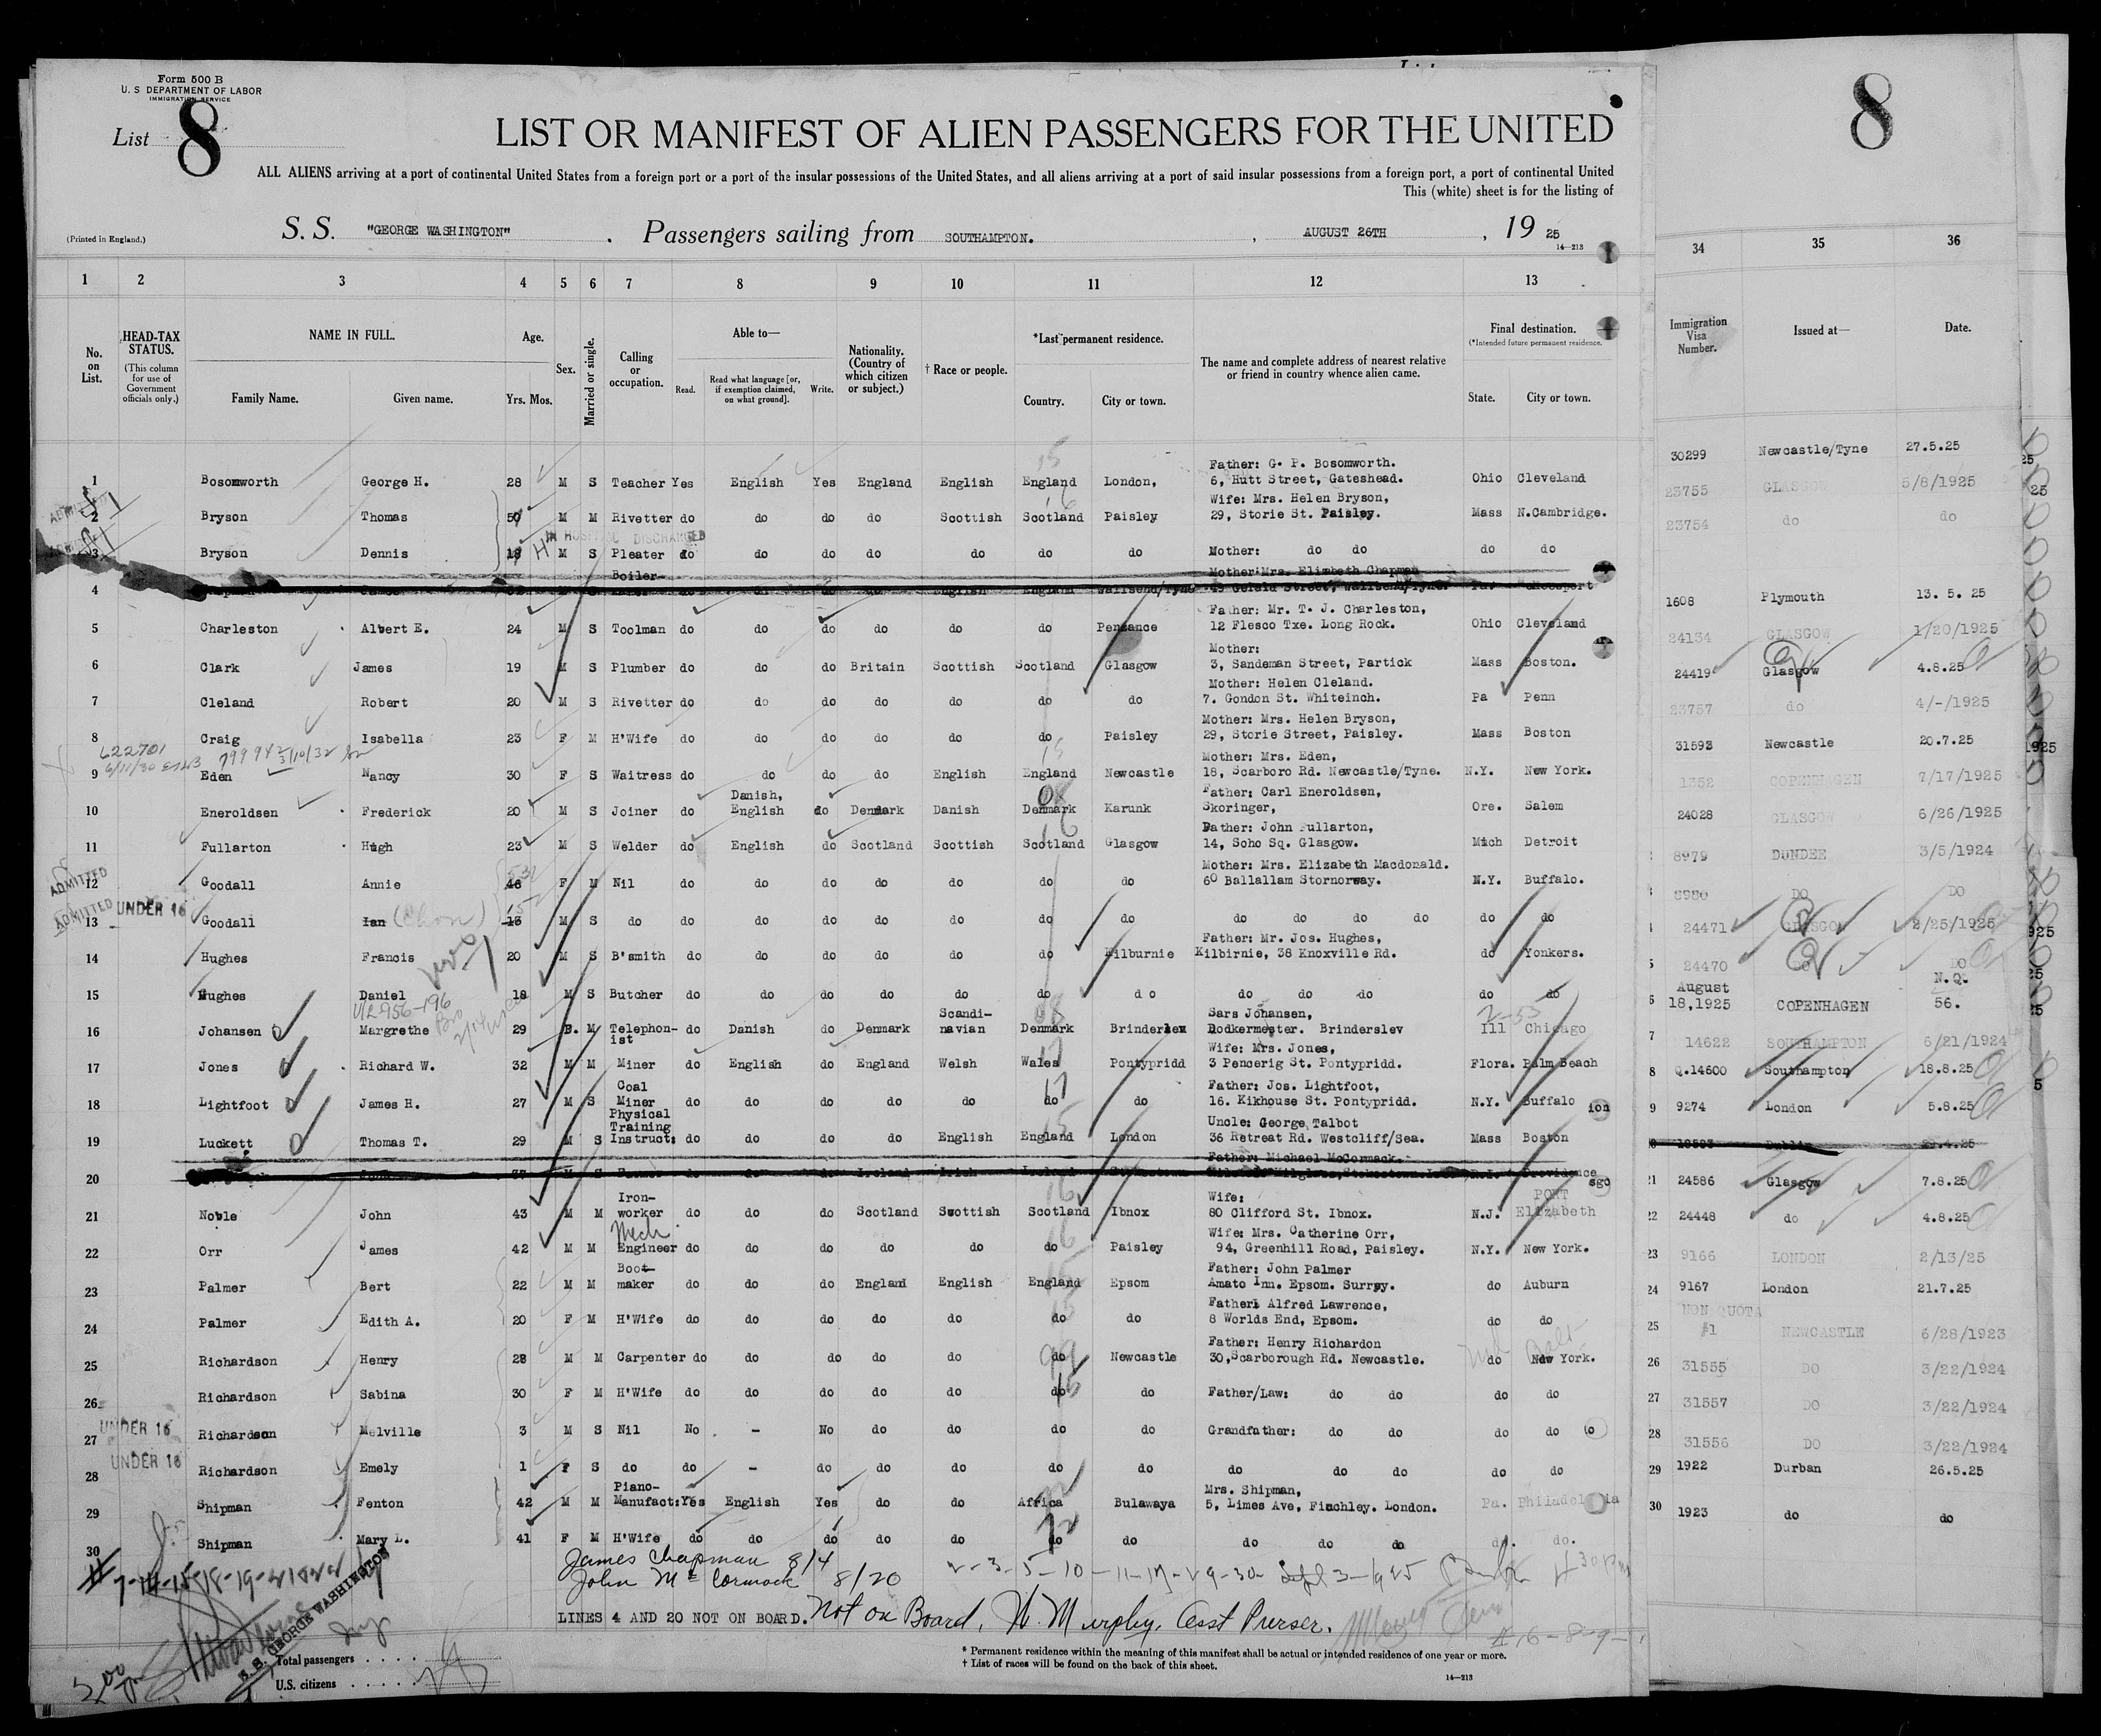 Form 500 B
U. S DEPARTMENT OF LABOR
IMMIGRATION SERVICE
List 8
8
LIST OR MANIFEST OF ALIEN PASSENGERS FOR THE UNITED
ALL ALIENS arriving at a port of continental United States from a foreign port or a port of the insular possessions of the United States, and all aliens arriving at a port of said insular possessions from a foreign port, a port of continental United
This (white) sheet is for the listing of
(Printed in England.)
S. S. "GEORGE WASHINGTON" . Passengers sailing from SOUTHAMPTON. , AUGUST 26TH , 19 25
14—213
1 2 3 4 5 6 7 8 9 10 11 12 13 34 35 36
No. on List.
HEAD-TAX STATUS.
(This column for use of Government officials only.)
NAME IN FULL.
Family Name. Given name.
Age.
Yrs. Mos.
Sex.
Married or single.
Calling or occupation.
Able to—
Read. Read what language [or, if exemption claimed, on what ground]. Write.
Nationality. (Country of which citizen or subject.)
† Race or people.
*Last permanent residence.
Country. City or town.
The name and complete address of nearest relative or friend in country whence alien came.
Final destination.
(*Intended future permanent residence.
State. City or town.
Immigration Visa Number.
Issued at—
Date.
Father: G. P. Bosomworth.
1 Bosomworth George H. 28 M S Teacher Yes English Yes England English England London, 6, Hutt Street, Gateshead. Ohio Cleveland 30299 Newcastle/Tyne 27.5.25
Wife: Mrs. Helen Bryson,
2 Bryson Thomas 50 M M Rivetter do do do do Scottish Scotland Paisley 29, Storie St. Paisley. Mass N.Cambridge. 23755 GLASGOW 5/8/1925
IN HOSPITAL DISCHARGED
3 Bryson Dennis 18 M S Pleater do do do do do do do Mother: do do do do 23754 do do
Boiler- Mother:Mrs. Elizabeth Chapman
4 do do do do English England Wallsend/Tyne Street, Wallsend/Tyne. Pa.
Father: Mr. T. J. Charleston,
5 Charleston Albert E. 24 M S Toolman do do do do do do Penzance 12 Flesco Txe. Long Rock. Ohio Cleveland 1608 Plymouth 13. 5. 25
Mother:
6 Clark James 19 M S Plumber do do do Britain Scottish Scotland Glasgow 3, Sandeman Street, Partick Mass Boston. 24134 GLASGOW 1/20/1925
Mother: Helen Cleland.
7 Cleland Robert 20 M S Rivetter do do do do do do do 7. Gondon St. Whiteinch. Pa Penn 24419 Glasgow 4.8.25
Mother: Mrs. Helen Bryson,
8 Craig Isabella 23 F M H'Wife do do do do do do Paisley 29, Storie Street, Paisley. Mass Boston 23757 do 4/-/1925
622701
Mother: Mrs. Eden,
9 Eden Nancy 30 F S Waitress do do do do English England Newcastle 18, Scarboro Rd. Newcastle/Tyne. N.Y. New York. 31593 Newcastle 20.7.25
Danish, Father: Carl Eneroldsen,
10 Eneroldsen Frederick 20 M S Joiner do English do Denmark Danish Denmark Karunk Skoringer, Ore. Salem 1352 COPENHAGEN 7/17/1925
Father: John Fullarton,
11 Fullarton Hugh 23 M S Welder do English do Scotland Scottish Scotland Glasgow 14, Soho Sq. Glasgow. Mich Detroit 24028 GLASGOW 6/26/1925
Mother: Mrs. Elizabeth Macdonald.
ADMITTED
12 Goodall Annie 46 F M Nil do do do do do do do 60 Ballallam Stornorway. N.Y. Buffalo. 8979 DUNDEE 3/5/1924
ADMITTED UNDER 16
13 Goodall Ian 15 M S do do do do do do do do do do do do do do 8980 DO DO
Father: Mr. Jos. Hughes,
14 Hughes Francis 20 M S B'smith do do do do do do Kilburnie Kilbirnie, 38 Knoxville Rd. do Yonkers. 24471 GLASGOW 2/25/1925
15 Hughes Daniel 18 M S Butcher do do do do do do do do do do do do 24470 DO DO
Scandi- Sars Johansen, August N.Q.
16 Johansen Margrethe 29 F. M Telephon-ist do Danish do Denmark navian Denmark Brinderslev Dodkermester. Brinderslev Ill Chicago 18,1925 COPENHAGEN 56.
Wife: Mrs. Jones,
17 Jones Richard W. 32 M M Miner do English do England Welsh Wales Pontypridd 3 Pencerig St. Pontypridd. Flora. Palm Beach 14622 SOUTHAMPTON 6/21/1924
Coal Father: Jos. Lightfoot,
18 Lightfoot James H. 27 M S Miner do do do do do do do 16. Kikhouse St. Pontypridd. N.Y. Buffalo Q.14600 Southampton 18.8.25
Physical Training Uncle: George Talbot
19 Luckett Thomas T. 29 M S Instruct: do do do do English England London 36 Retreat Rd. Westcliff/Sea. Mass Boston 9274 London 5.8.25
Father: Michael McCormack
20 37 M S do do do Ireland Irish Ireland R.I. Providence Dublin
Iron- Wife: PORT
21 Noble John 43 M M worker do do do Scotland Scottish Scotland Ibnox 80 Clifford St. Ibnox. N.J. Elizabeth 24586 Glasgow 7.8.25
Mech Wife: Mrs. Catherine Orr,
22 Orr James 42 M M Engineer do do do do do do Paisley 94, Greenhill Road, Paisley. N.Y. New York. 24448 do 4.8.25
Boot- Father: John Palmer
23 Palmer Bert 22 M M maker do do do England English England Epsom Amato Inn. Epsom. Surrey. do Auburn 9166 LONDON 2/13/25
Father: Alfred Lawrence,
24 Palmer Edith A. 20 F M H'Wife do do do do do do do 8 Worlds End, Epsom. do do 9167 London 21.7.25
Father: Henry Richardon NON QUOTA
25 Richardson Henry 28 M M Carpenter do do do do do do Newcastle 30,Scarborough Rd. Newcastle. do New York. #1 NEWCASTLE 6/28/1923
26 Richardson Sabina 30 F M H'Wife do do do do do do do Father/Law: do do do do 31555 DO 3/22/1924
UNDER 16
27 Richardson Melville 3 M S Nil No - No do do do do Grandfather: do do do do 31557 DO 3/22/1924
UNDER 16
28 Richardson Emely 1 F S do do - do do do do do do do do do do 31556 DO 3/22/1924
Piano- Mrs. Shipman,
29 Shipman Fenton 42 M M Manufact: Yes English Yes do do Africa Bulawaya 5, Limes Ave, Finchley. London. Pa. Philadelphia 1922 Durban 26.5.25
30 Shipman Mary L. 41 F M H'Wife do do do do do do do do do do do do. do. 1923 do do
James Chapman 8/4
John McCormack 8/20
2-3-5-10-11-17-29-30- Sept 3-1925
LINES 4 AND 20 NOT ON BOARD. Not on Board, W. Murphy. Asst Purser.
S.S. GEORGE WASHINGTON
Total passengers . . . .
U.S. citizens . . . . .
* Permanent residence within the meaning of this manifest shall be actual or intended residence of one year or more.
† List of races will be found on the back of this sheet.
14—213